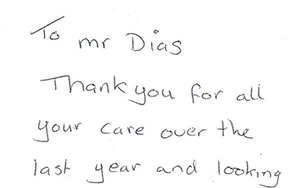 To mr Dias
Thank you for all
your care over the
last year and looking